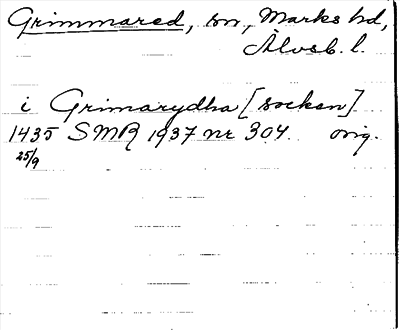 Grimmared, sn, Marks hd,
Älvsb. l.
i Grimarydha [socken]
1435 SMR 1937 nr 304. orig.
25/9